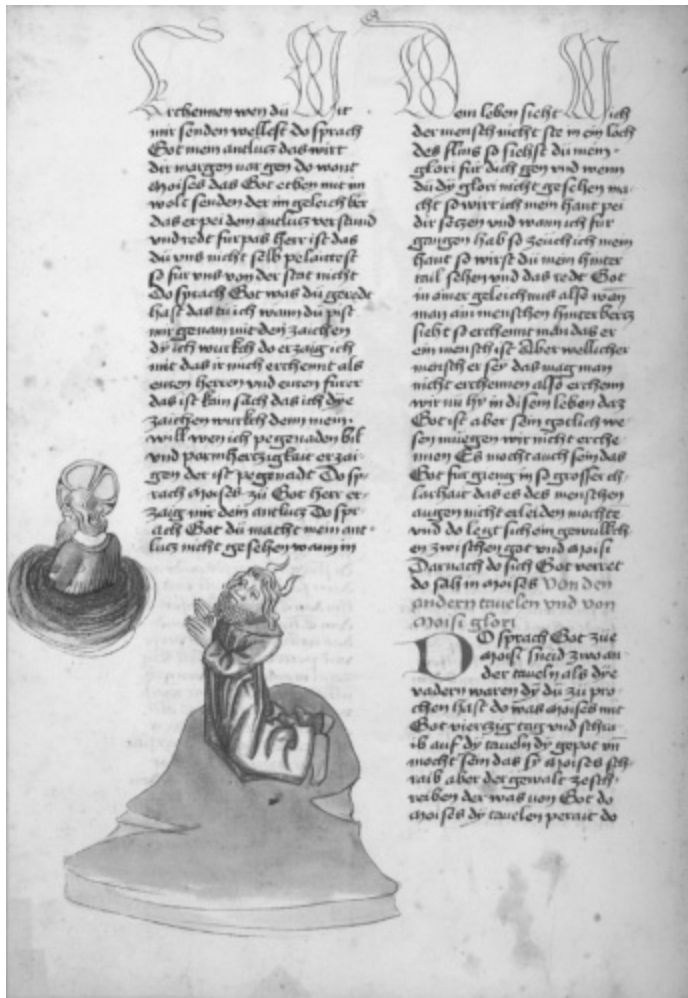 erchennen wen dü mit
mir senden wellest do sprach
Got mein antlucz das wirt
dir margen vor gen do wont
Moises das Got etben mit im
wolt senden der im geleich ber
das er pei dem antlucz verstuend
vnd redt fürpas herr ist das
dü vns nicht selb pelaittest
so für vns von der stat nicht
Do sprach Got was dü geredt
hast das tü ich wann dü pist
mir genam mit den zaichen
dy ich wurkch do erzaig ich
mit das ir mich erchennt als
ewren herren vnd ewren fürer
das ist kain sach das ich dye
zaichen wurkch denn mein
will wen ich pegenaden bil
vnd parmhertzigkait erzai-
gen der ist pegenadt Do sp-
rach Moises zü Got herr er-
zaig mir dein antlucz Do spr-
ach Got dü macht mein ant-
lucz nicht gesehen wann in
dem leben sicht mich
der mensch nicht ste in ein loch
des stains so siehst dü mein
glori für dich gen vnd wenn
dü dy glori nicht gesehen ma-
cht so wirt ich mein hant pei
dir seczen vnd wann ich für
gangen hab so zeuch ich mein
hant so wirst dü mein hinter
tail sehen vnd das redt Got
in ainer geleichnus also wen
man ain menschen hinterbertz
sieht so erchennt man das er
ein mensch ist Aber wellicher
mensch er sey das mag man
nicht erchennen also erchenn
wir nu hy in disem leben daz
Got ist aber sein gotlich we-
sen muegen wir nicht erche
nnen Es mocht auch sein das
Got für gieng in so grosser ch-
larhait das es des menschen
augen nicht erleiden mochte
vnd do legt sich ein gewulkch-
en zwischen got vnd Moisi
Darnach do sich Got verret
do sah in Moises Von den
andern tauelen vnd von
Moisi glori
DO sprach Got züe
Moisi sneid zwo an-
der taueln als dye
vadern waren dy dü zü pro-
chen hast do was Moises mit
Got vierczig tag vnd schra-
ib auf dy taueln dy gepot vnd
mocht sein das sy Moises sch-
raib aber der gewalt zesch-
reiben der was von Got do
Moises dy tauelen perait do